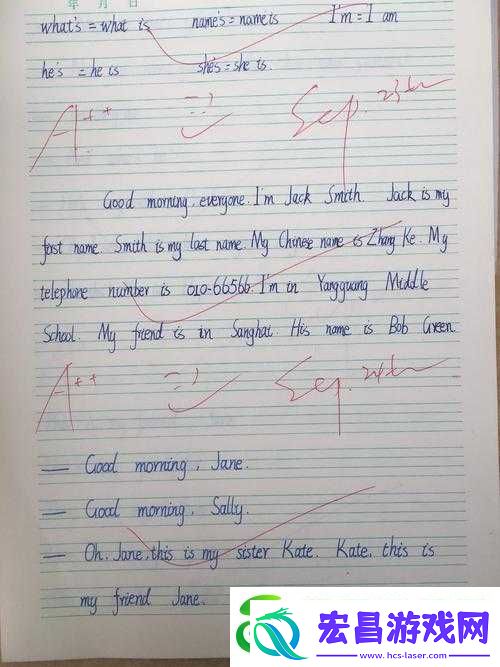 年 月 日
what's = what is name's = name is I'm = I am
he's = he is she's = she is.
A++ Sep. 23th
Good morning, everyone. I'm Jack Smith. Jack is my
first name. Smith is my last name. My Chinese name is Zhang Ke. My
telephone number is 010-66566. I'm in Yangguang Middle
School. My friend is in Sanghai. His name is Bob Green.
A++ Sep. 24th
— Good morning, Jane.
— Good morning, Sally.
— Oh, Jane, this is my sister Kate. Kate, this is
my friend Jane.
宏昌游戏网
www.hcs-laser.com